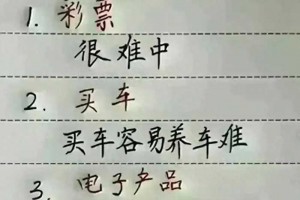 1. 彩票
很难中
2. 买车
买车容易养车难
3. 电子产品